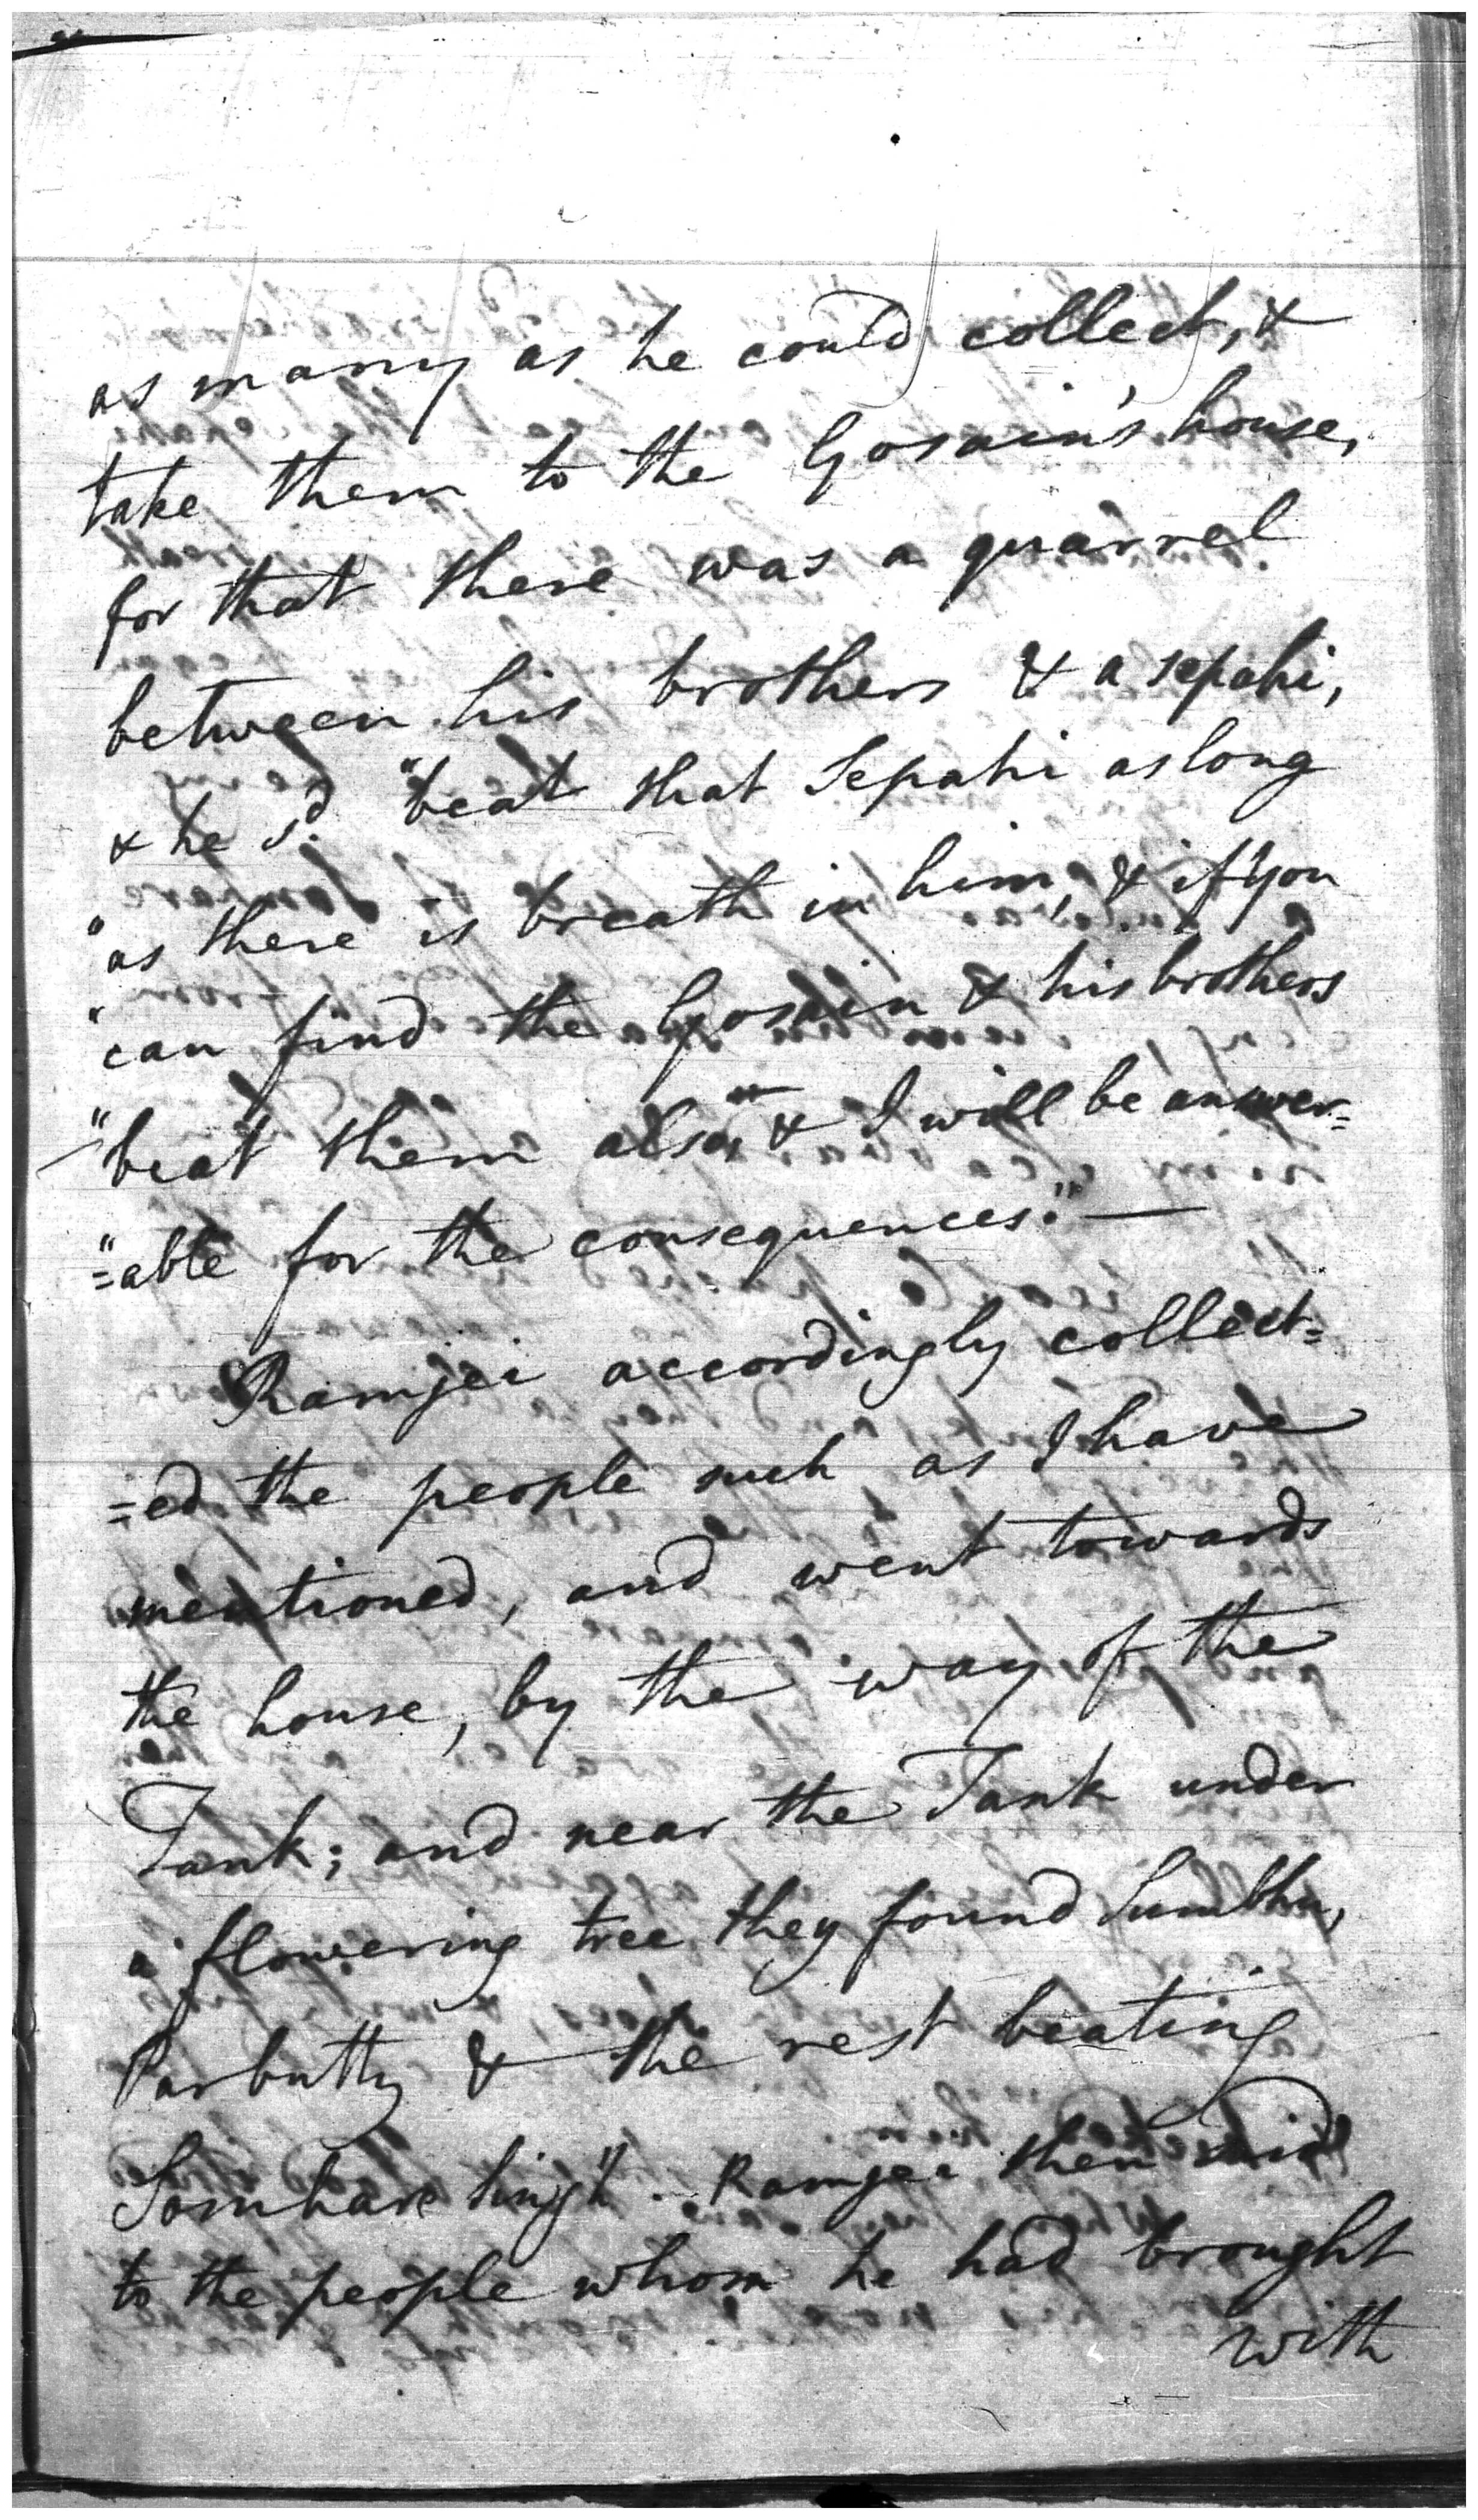 as many as he could collect, &
take them to the Gosain's house,
for that there was a quarrel
between his brothers & a sepahi,
& he sd. "beat that Sepahi as long
"as there is breath in him, & if you
"can find the Gosain & his brothers
"beat them also, & I will be answer=
"=able for the consequences." —
Ramjei accordingly collect=
=ed the people such as I have
mentioned, and went towards
the house, by the way of the
Tank; and near the Tank under
a flowering tree they found Sumbhu,
Parbutty & the rest beating
Somhare Singh. Ramjei then said
to the people whom he had brought
with